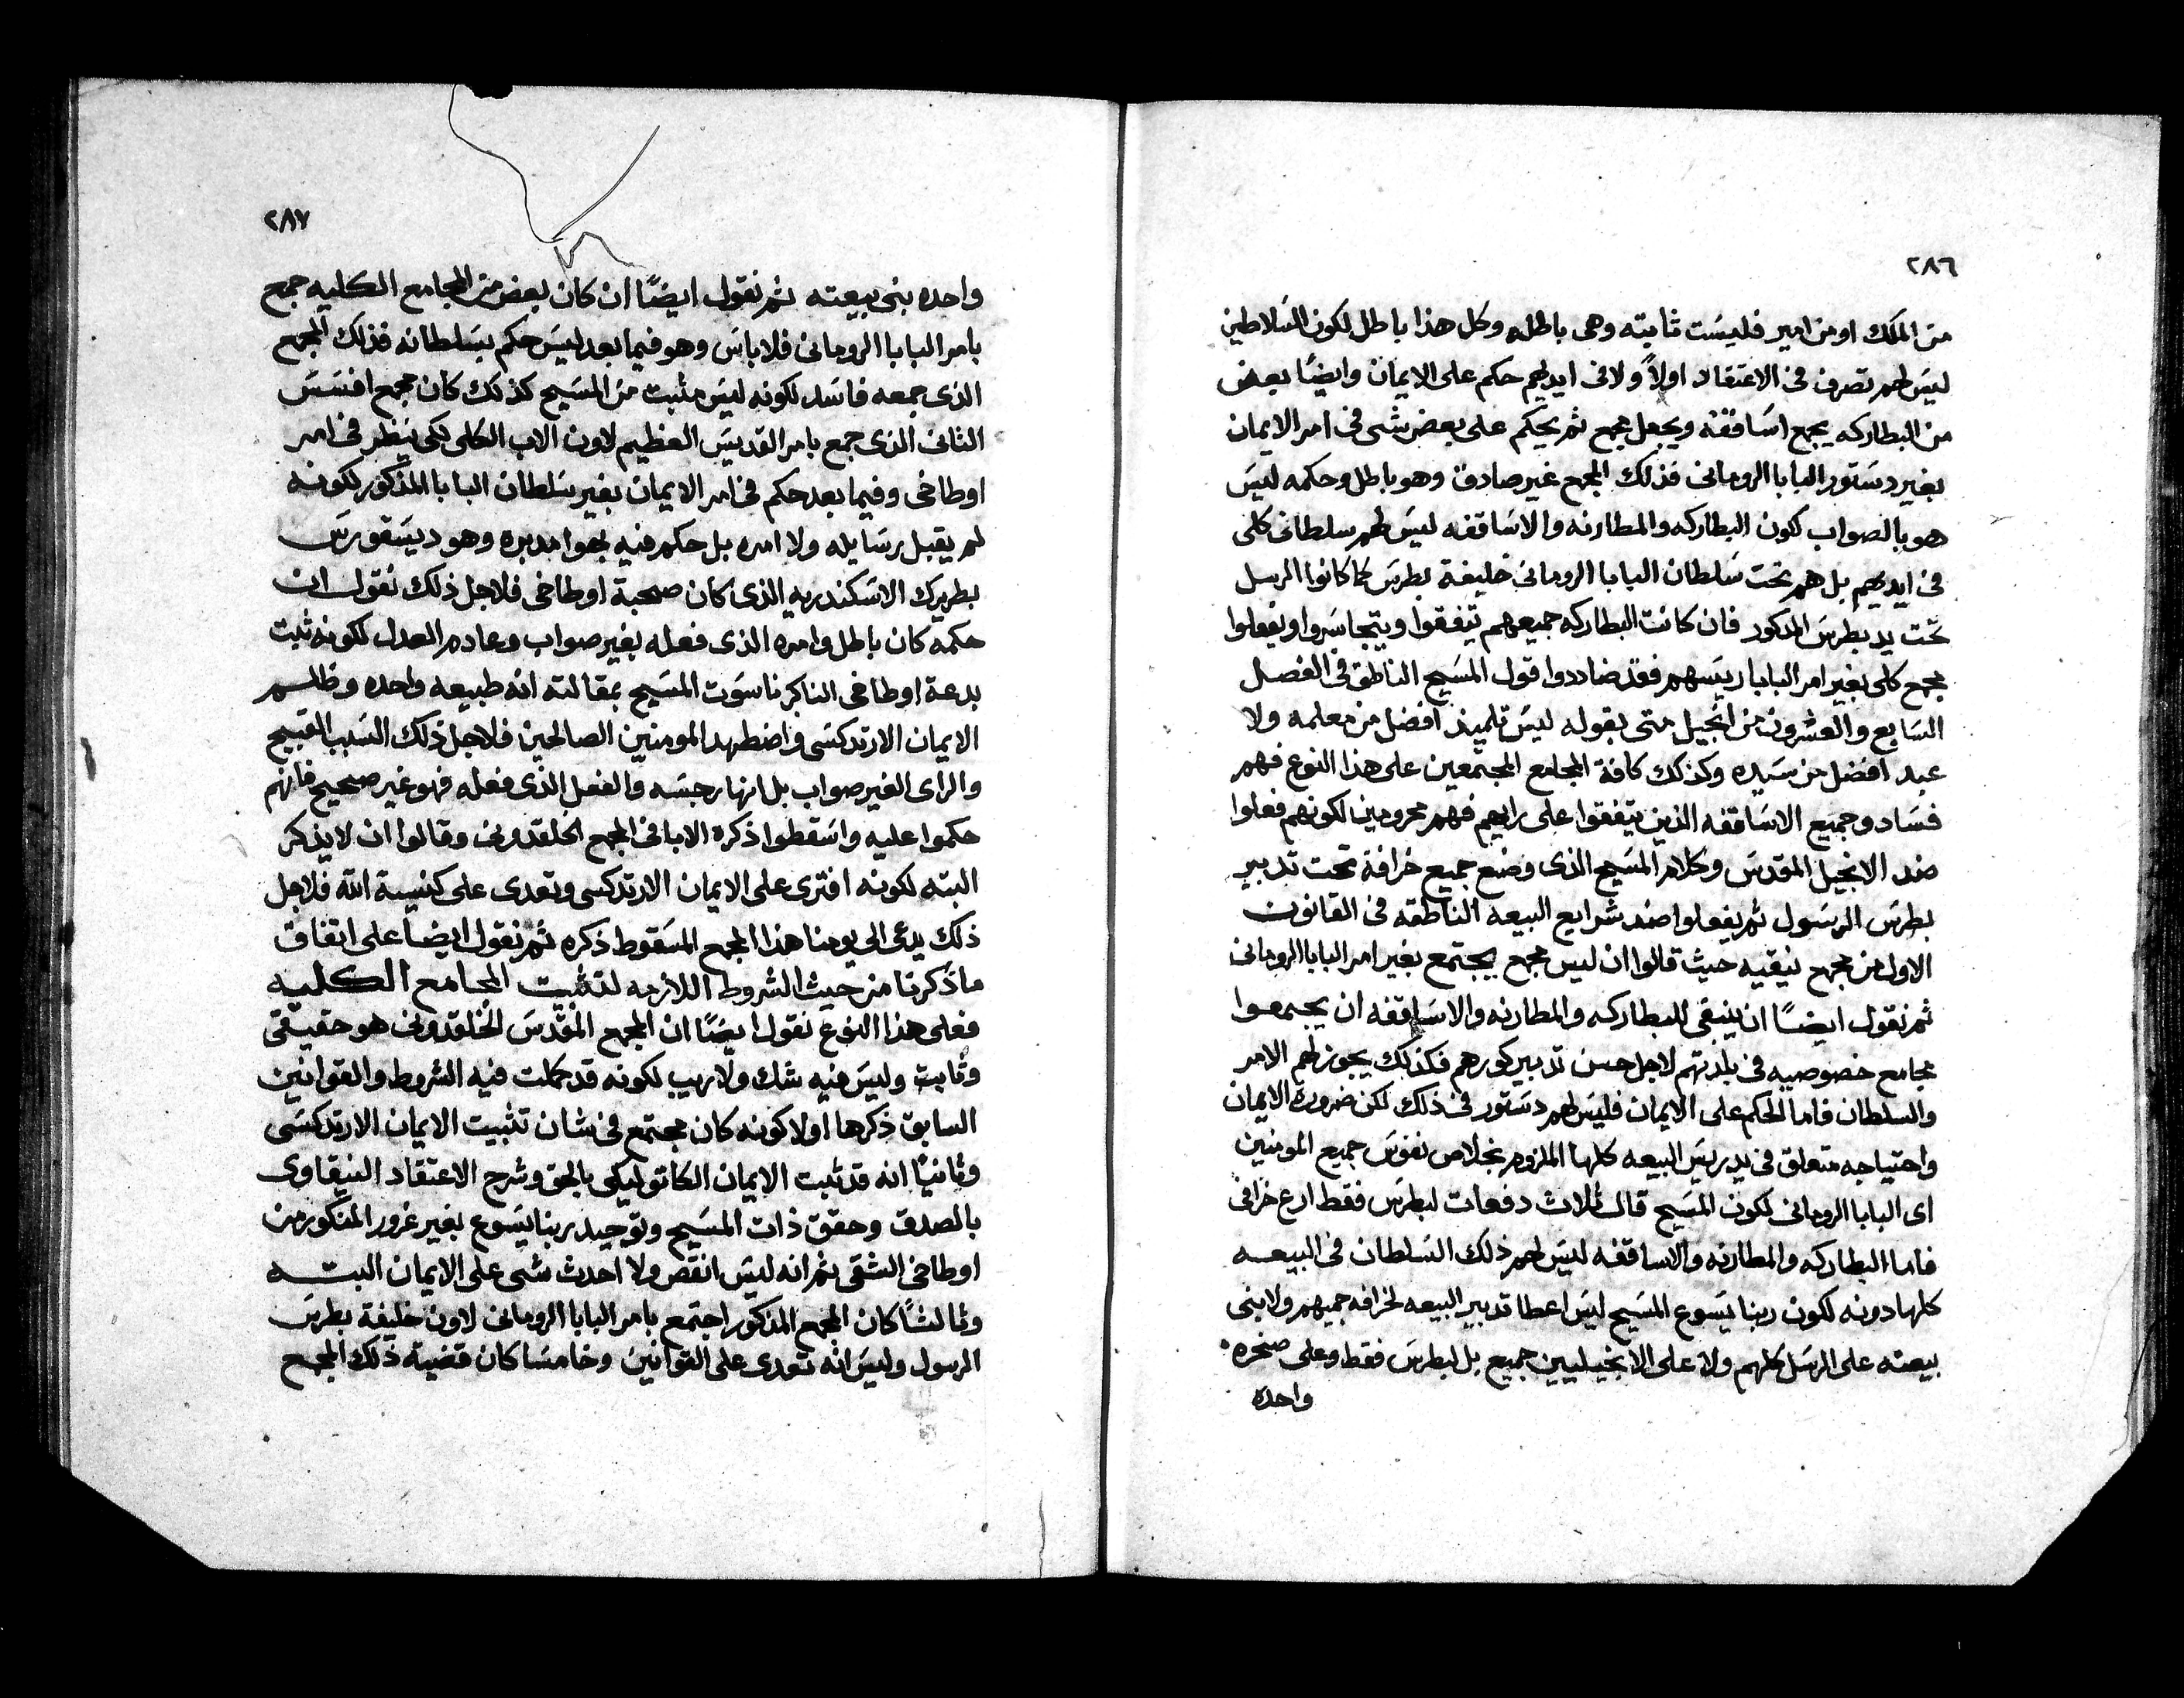 ٢٨٦
من الملك او من امير فليست ثابته وهى باطله وكل هذا باطل لكون السلاطين
ليس لهم تصرف فى الاعتقاد اولاً ولا فى ايديهم حكم على الايمان وايضًا بعض
من البطاركه يجمع اساقفة ويجعل مجمع ثم يحكم على بعض شى فى امر الايمان
بغير دستور البابا الرومانى فذلك المجمع غير صادق وهو باطل وحكمه ليس
هو بالصواب لكون البطاركه والمطارنه والاساقفه ليس لهم سلطانى كلى
فى ايديهم بل هم تحت سلطان البابا الرومانى خليفة بطرس كما كانوا الرسل
تحت يد بطرس المدكور فان كانت البطاركه جميعهم يتفقوا ويتجاسروا ويفعلوا
مجمع كلى بغير امر البابا ريسهم فقد ضاددوا قول المسيح الناطق فى الفصل
السابع والعشرون من انجيل متى بقوله ليس تلميذ افضل من معلمه ولا
عبد افضل من سيده وكذلك كافة المجامع المجتمعين على هذا النوع فهم
فساد وجميع الاساقفه الذين يتفقوا على رايهم فهم محرومين لكونهم فعلوا
ضد الانجيل المقدس وكلام المسيح الذى وضع جميع خرافة تحت تدبير
بطرس الرسول ثم يفعلوا ضد شرايع البيعه الناطقه فى القانون
الاول من مجمع نيقيه حيث قالوا ان ليس مجمع يجتمع بغير امر البابا الرومانى
ثم نقول ايضًا ان ينبغى للبطاركه والمطارنه والاساقفه ان يجمعوا
مجامع خصوصيه فى بلدتهم لاجل حسن تدبير كورهم فكذلك يجوز لهم الامر
والسلطان فاما الحكم على الايمان فليس لهم دستور فى ذلك لكن ضرورة الايمان
واحتياجه متعلق فى يد ريس البيعه كلها الملزوم بخلاص نفوس جميع المومنين
اى البابا الرومانى لكون المسيح قال ثلاث دفعات لبطرس فقط ارع خرافى
فاما البطاركه والمطارنه والاساقفه ليس لهم ذلك السلطان فى البيعه
كلها دونه لكون ربنا يسوع المسيح ليس اعطا تدبير البيعه لخرافه جميهم ولا بنى
بيعته على الرسل كلهم ولا على الانجيليين جميع بل لبطرس فقط وعلى صخره
واحدة
٢٨٧
واحده بنى بيعته ثم نقول ايضًا ان كان بعض من المجامع الكليه جمع
بامر البابا الرومانى فلا باس وهو فيما بعد ليس حكم بسلطانه فذلك المجمع
الذى جمعه فاسد لكونه ليس مثبت من المسيح كذلك كان مجمع افسس
الثانى الذى جمع بامر القديس العظيم لاون الاب الكلى لكى ينظر فى امر
اوطاخى وفيما بعد حكم فى امر الايمان بغير سلطان البابا المذكور لكونه
لم يقبل رسايله ولا امره بل حكم فيه بهوا مدبره وهو ديسقورس
بطريرك الاسكندريه الذى كان صحبة اوطاخى فلاجل ذلك نقول ان
حكمه كان باطل وامره الذى فعله بغير صواب وعادم العدل لكونه ثبت
بدعة اوطاخى الناكر ناسوت المسيح بمقالته انه طبيعه واحده وظلم
الايمان الارتدكسى واضطهد المومنين الصالحين فلاجل ذلك السبب القبيح
والراى الغير صواب بل انها رجسه والفعل الذى فعله فهو غير صحيح فانهم
حكموا عليه واسقطوا ذكره الابا فى المجمع الخلقدونى وقالوا ان لا يذكر
البته لكونه افترى على الايمان الارتدكسى وتعدى على كنيسة الله فلاجل
ذلك يدعى الى يومنا هذا المجمع المسقوط ذكره ثم نقول ايضًا على اتفاق
ما ذكرنا من حيث الشروط اللازمه لتثبيت المجامع الكليه
فعلى هذا النوع نقول ايضًا ان المجمع المقدس الخلقدونى هو حقيقى
وثابت وليس فيه شك ولا ريب لكونه قد كملت فيه الشروط والقوانين
السابق ذكرها اولا كونه كان مجتمع فى شان تثبيت الايمان الارتدكسى
وثانيًا انه قد ثبت الايمان الكاتوليكى بالحق وشرح الاعتقاد النيقاوى
بالصدق وحقق ذات المسيح وتوحيد ربنا يسوع بغير غرور المنكور من
اوطاخى الشقى ثم انه ليس انقص ولا احدث شى على الايمان البته
وثالثًا كان المجمع المذكور اجتمع بامر البابا الرومانى لاون خليفة بطرس
الرسول وليس انه تعدى على القوانين وخامسا كان قضية ذلك المجمع